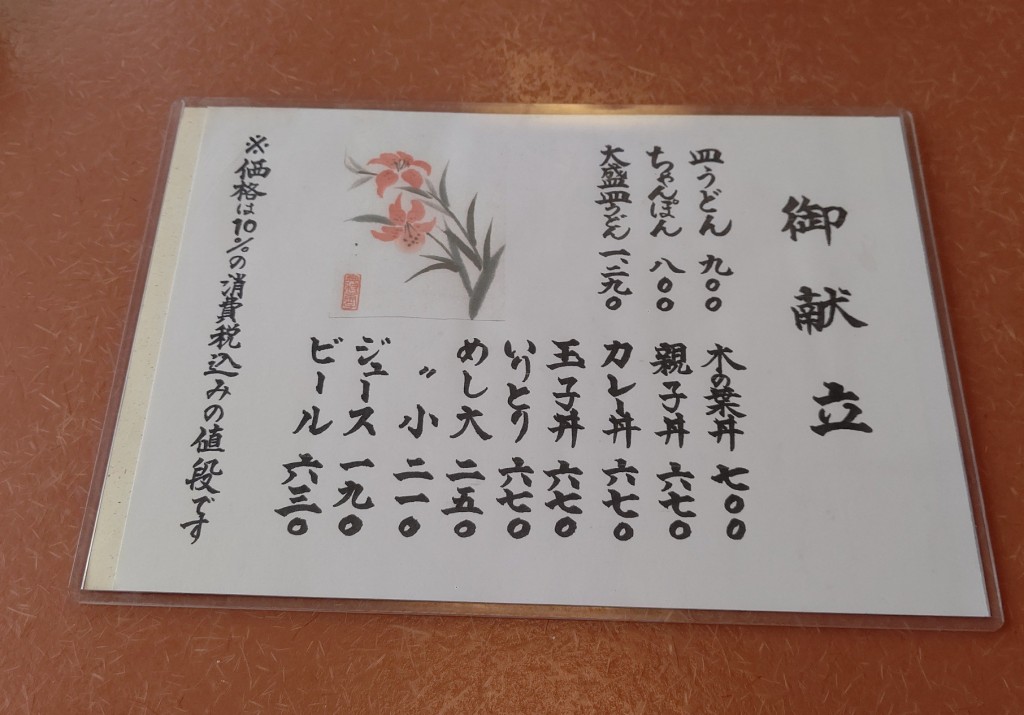 御献立
皿うどん 九〇〇
ちゃんぽん 八〇〇
大盛皿うどん 一、二九〇
木の葉丼 七〇〇
親子丼 六七〇
カレー丼 六七〇
玉子丼 六七〇
いりとり 六七〇
めし大 二五〇
〃 小 二一〇
ジュース 一九〇
ビール 六三〇
※価格は10%の消費税込みの値段です